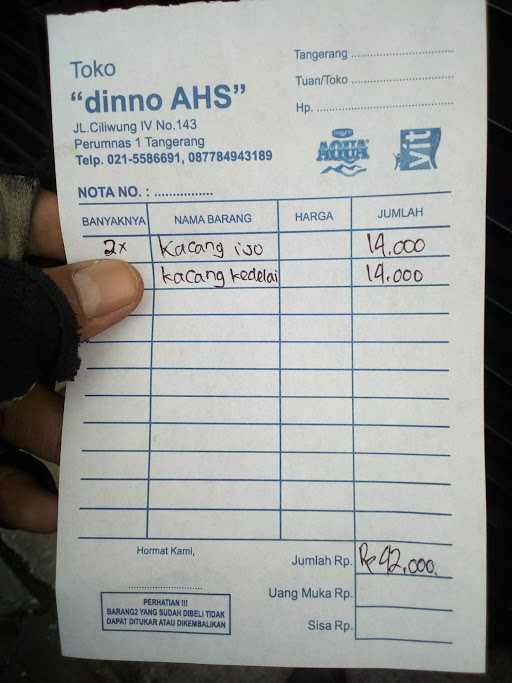 Toko
“dinno AHS”
JL.Ciliwung IV No.143
Perumnas 1 Tangerang
Telp. 021-5586691, 087784943189
Tangerang ..............................
Tuan/Toko ..............................
Hp. ..............................
AQUA
vit
NOTA NO. : ................
BANYAKNYA NAMA BARANG HARGA JUMLAH
2x kacang ijo 14.000
kacang kedelai 14.000
Hormat Kami,
Jumlah Rp. Rp 42.000,
Uang Muka Rp.
Sisa Rp.
PERHATIAN !!!
BARANG2 YANG SUDAH DIBELI TIDAK
DAPAT DITUKAR ATAU DIKEMBALIKAN